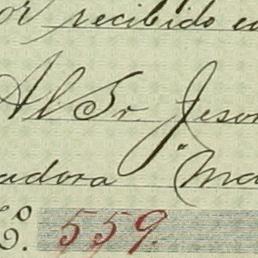 or recibido en
Al Sr Jeson
adora "Ma
No. 559.